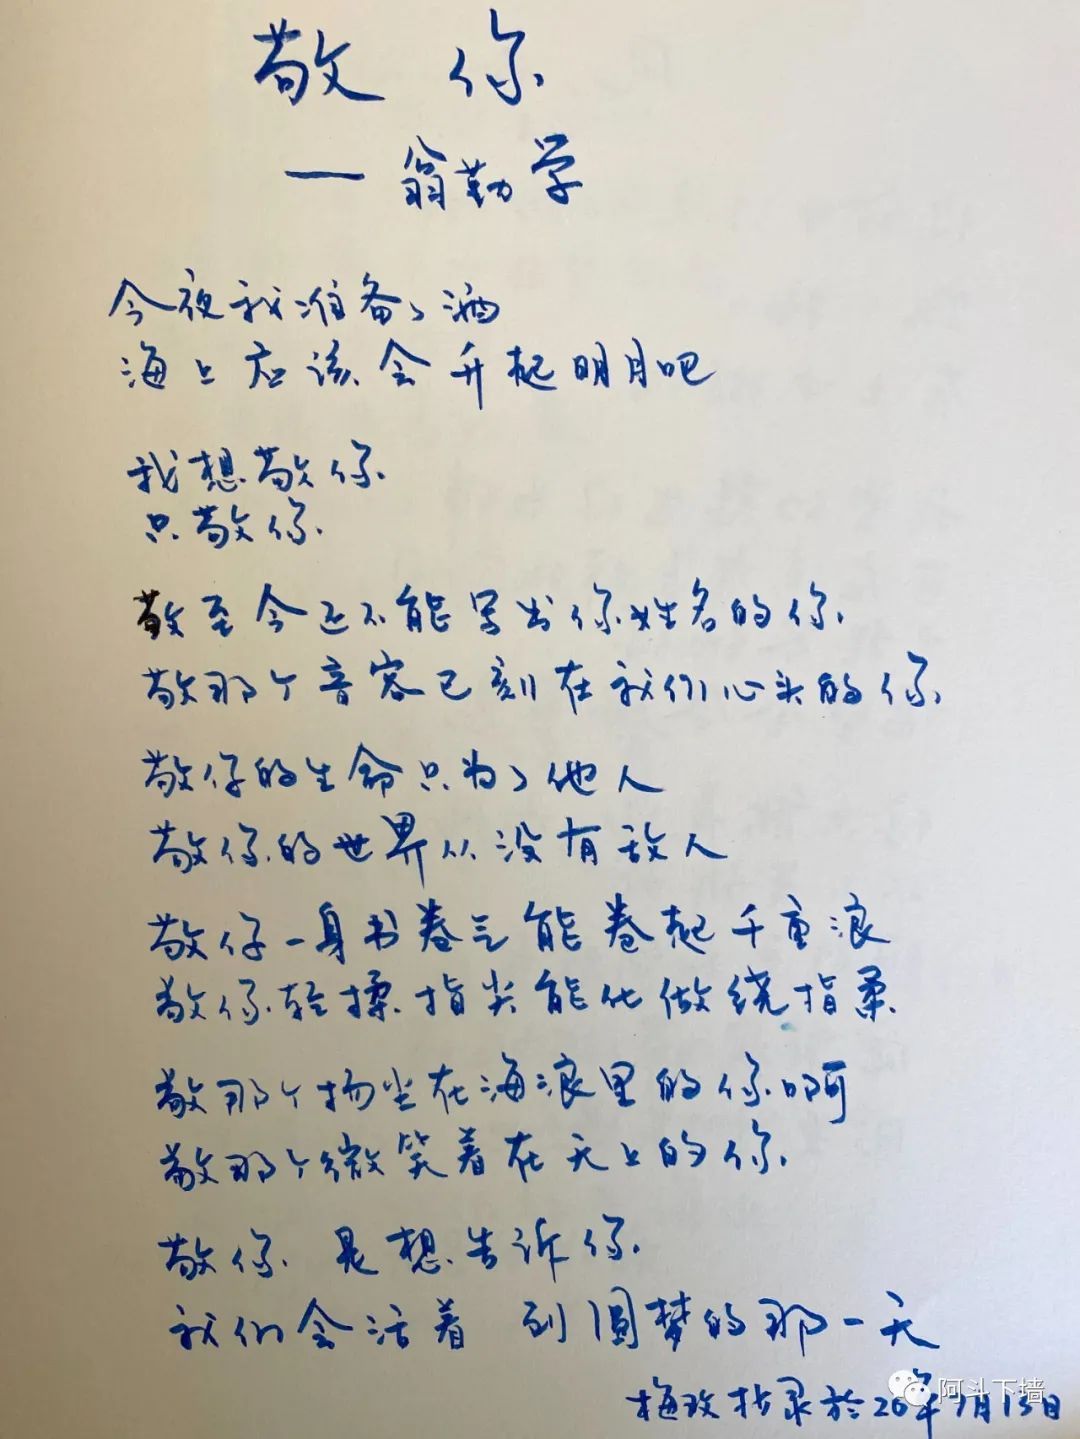 敬你
—翁勤学
今夜我准备了酒
海上应该会升起明月吧
我想敬你
只敬你
敬至今还不能写出你姓名的你
敬那个音容已刻在我们心头的你
敬你的生命只为了他人
敬你的世界从没有敌人
敬你一身书卷气能卷起千重浪
敬你轻揉指尖能化做绕指柔
敬那个扬尘在海浪里的你啊
敬那个微笑着在天上的你
敬你 是想告诉你
我们会活着 到圆梦的那一天
抄录於20年7月13日
阿斗下墙